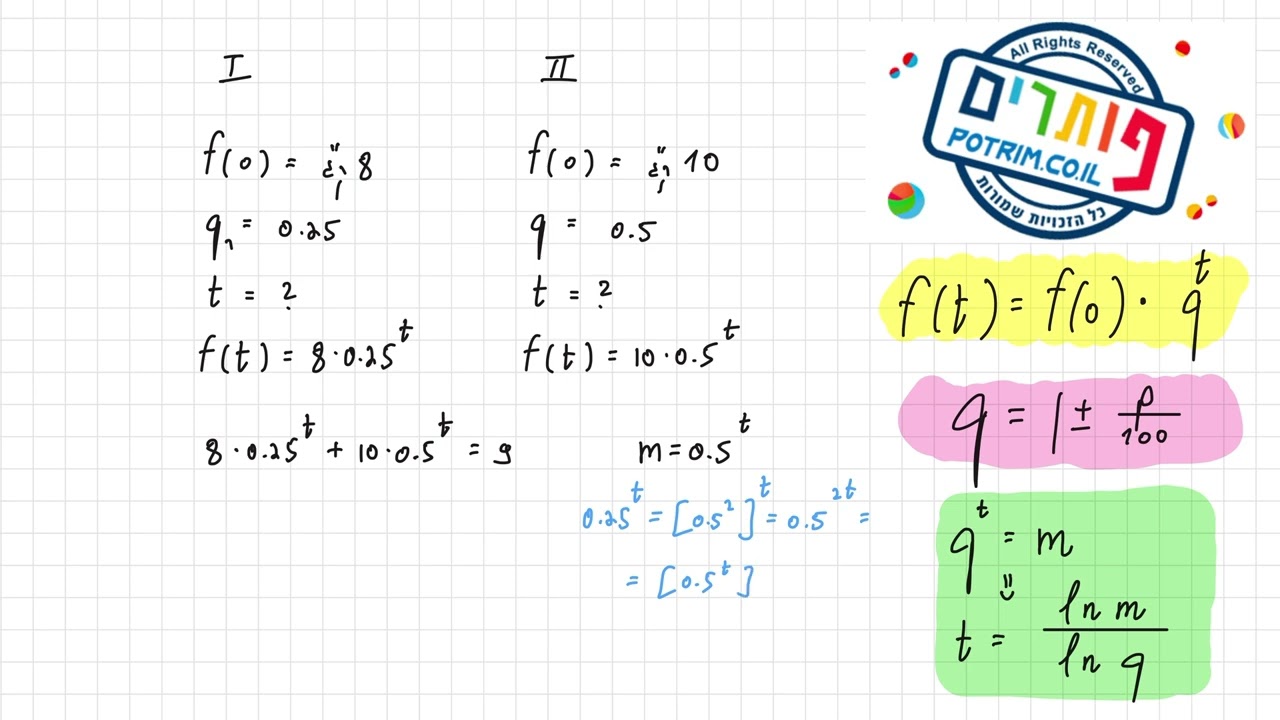 I
f(0) = ק"ג 8
q₁ = 0.25
t = ?
f(t) = 8·0.25^t
II
f(0) = ק"ג 10
q = 0.5
t = ?
f(t) = 10·0.5^t
8·0.25^t + 10·0.5^t = 9
m = 0.5^t
0.25^t = [0.5^2]^t = 0.5^2t =
= [0.5^t]
All Rights Reserved
פותרים
POTRIM.CO.IL
כל הזכויות שמורות
f(t) = f(0)·q^t
q = 1 ± p/100
q^t = m
⇓
t = ln m / ln q